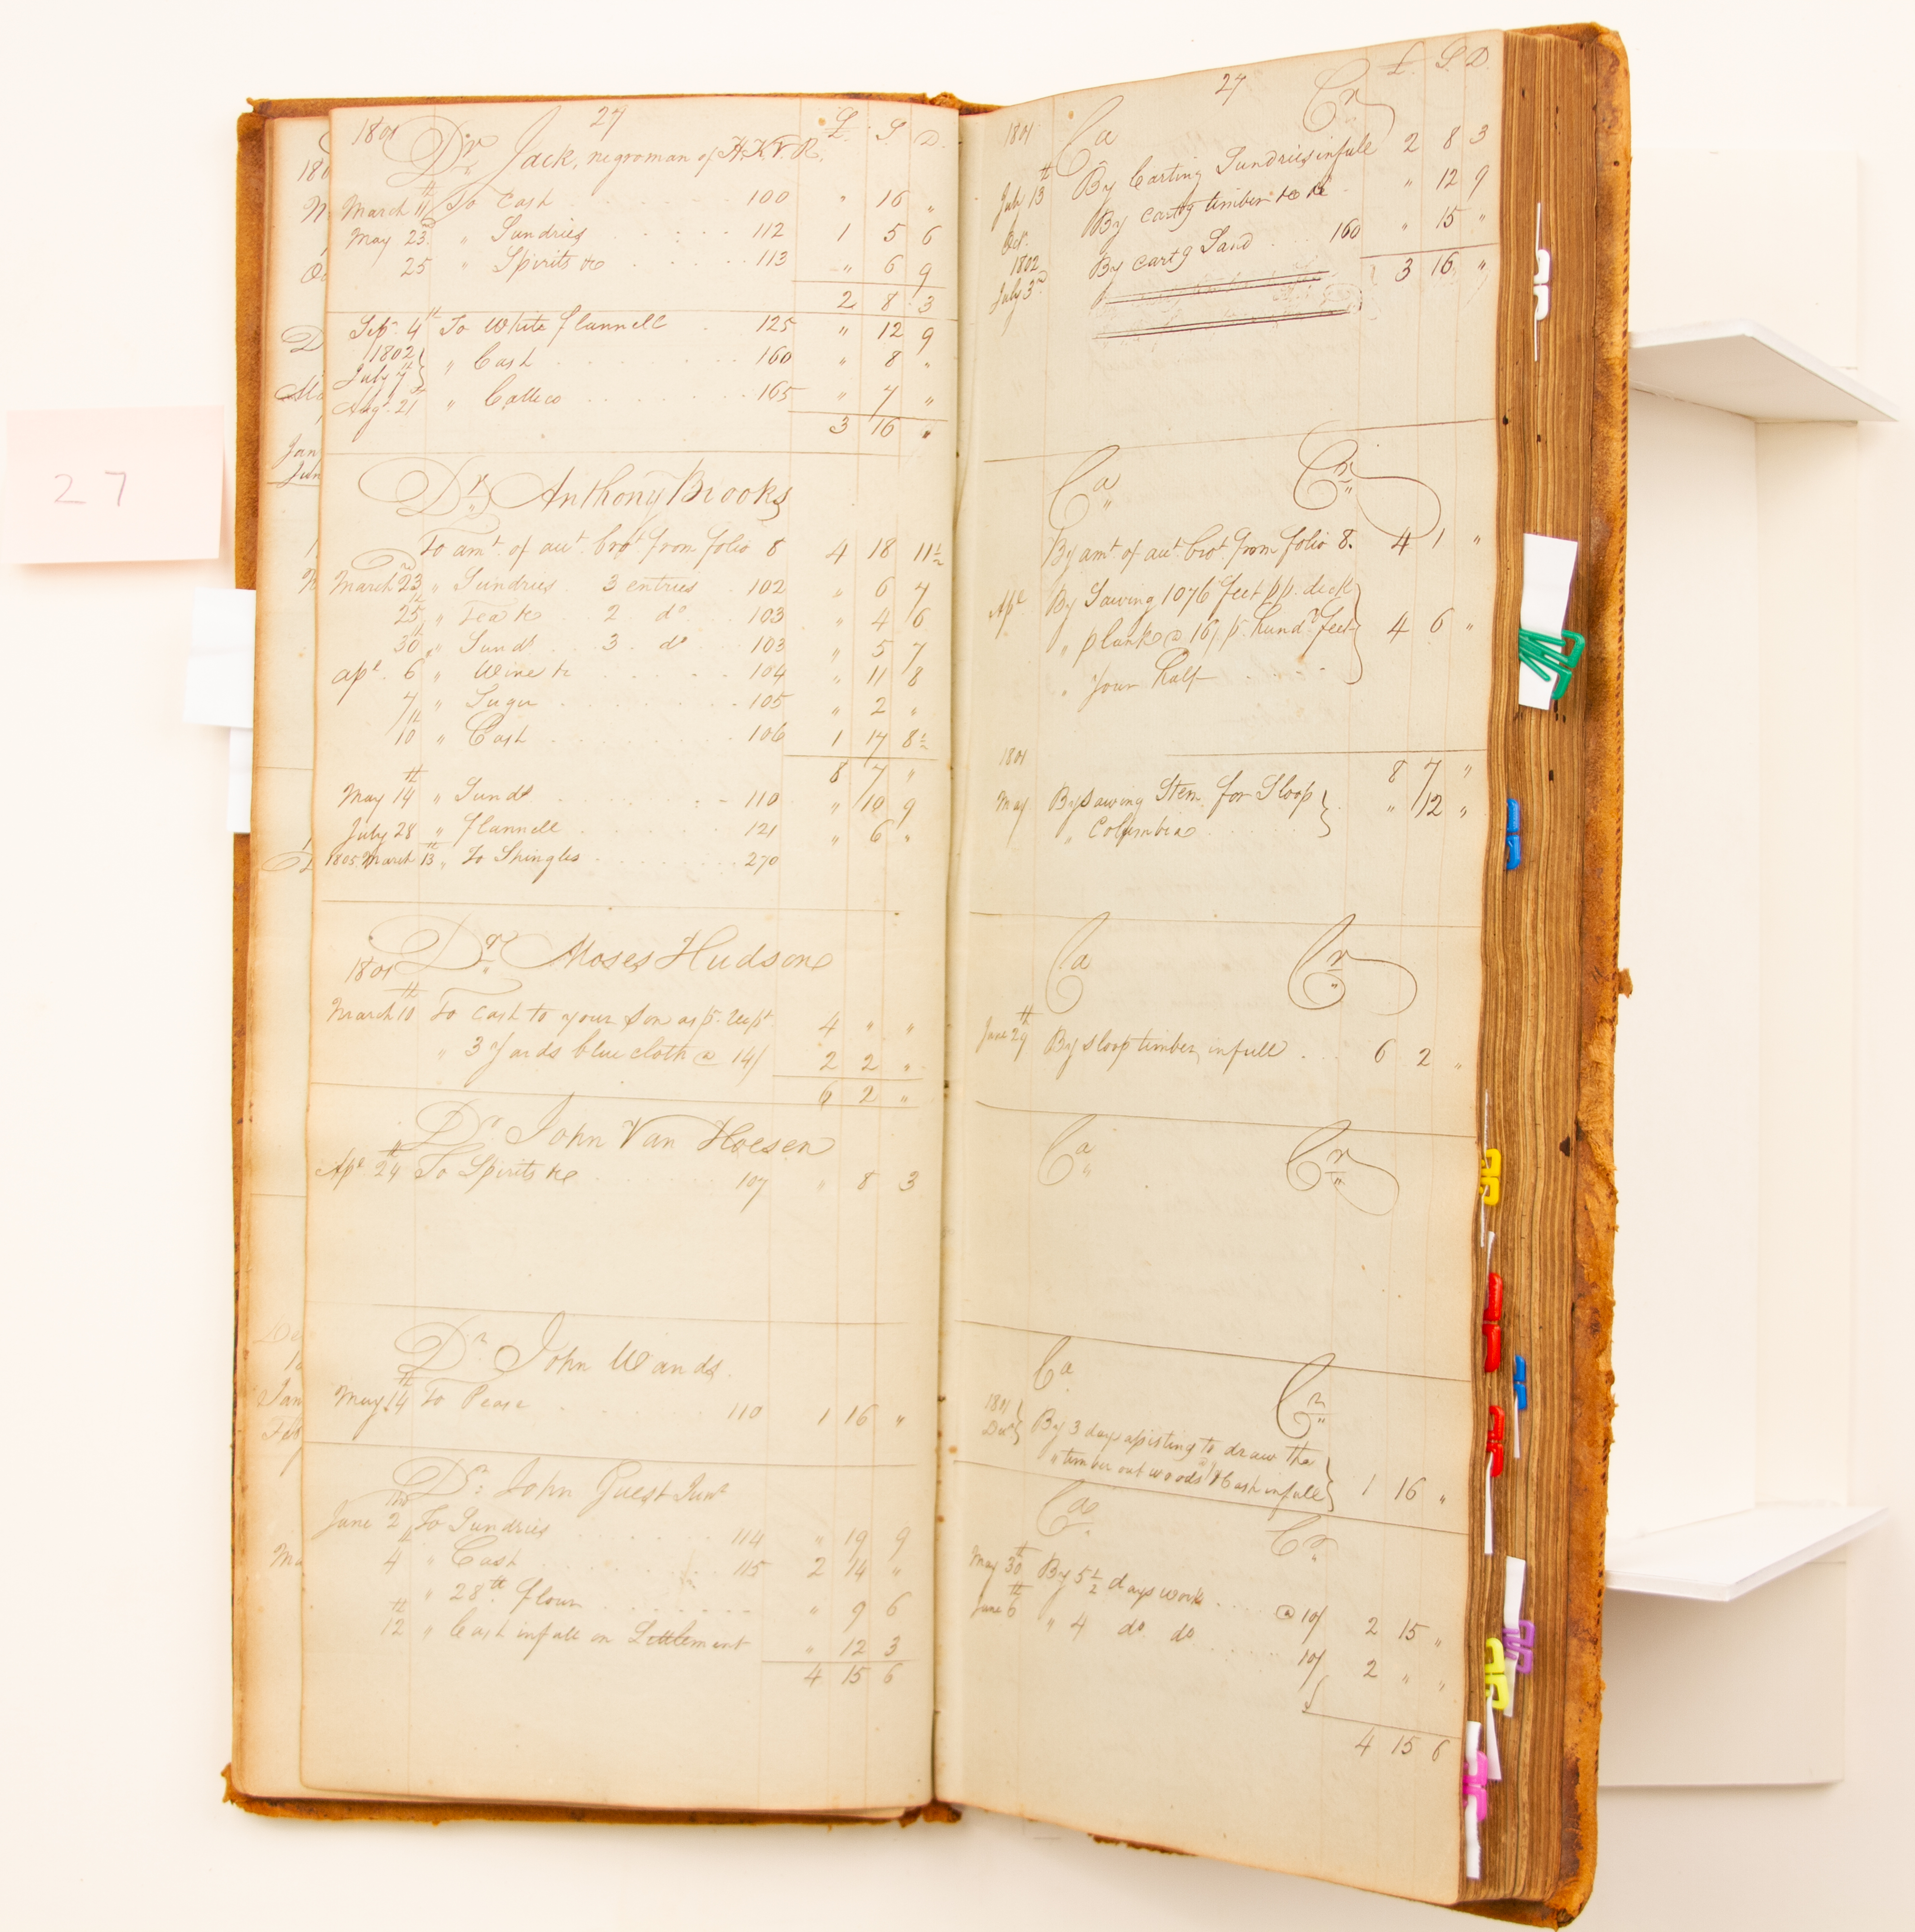 27
27
1801
£ S D
Dr Jack, negroman of H.K.V.R.
March 11th To Cash 100 " 16 "
May 23d " Sundries 112 1 5 6
25 " Spirits &c 113 " 6 9
2 8 3
Sepr 4th To White flannell 125 " 12 9
1802
July 7th } " Cash 160 " 8 "
Augt 21st " Callico 165 " 7 "
3 16 "
Dr Anthony Brooks
To amt. of acct. brot. from folio 8 4 18 11½
March 23d " Sundries 3 entries 102 " 6 7
25th " Tea &c 2 do 103 " 4 6
30th " Sunds 3 do 103 " 5 7
apl. 6 " Wine &c 104 " 11 8
7 " Sugar 105 " 2 "
10th " Cash 106 1 17 8½
8 7 "
May 14th " Sunds 110 " 10 9
July 28 " flannell 121 " 6 "
1805 March 13th " To Shingles 270
1801
Dr Moses Hudson
March 10th To Cash to your Son as p. recpt. 4 " "
" 3 Yards blue cloth @ 14/ 2 2 "
6 2 "
Dr John Van Hoesen
Apl 24th To Spirits &c 107 " 8 3
Dr John Wands
May 14th To Pease 110 1 16 "
Dr: John Guest Junr
June 2 To Sundries 114 " 19 9
4th " Cash 115 2 14 "
" 28 lb. flour " 9 6
12th " Cash in full on Settlement " 12 3
4 15 6
27
£ S D
1801
Ca Cr
July 13th By Carting Sundries in full 2 8 3
Oct. By cartg timber &c &c " 12 9
1802
July 3rd By cartg Sand 160 " 15 "
3 16 "
Ca Cr
By amt. of acct. brot. from folio 8. 4 1 "
Apl By Sawing 1076 feet pp. deck
" plank @ 16/ p. hundd feet } 4 6 "
" your half
8 7 "
1801
May By Sawing Stem for Sloop } " 12 "
" Columbia
Ca Cr
June 29th By sloop timber, in full 6 2 "
Ca Cr
Ca Cr
1801
Decr } By 3 days assisting to draw the
" timber out woods & Cash in full } 1 16 "
Ca Cr
May 30th By 5½ days work @ 10/ 2 15 "
June 6th " 4 do do 10/ 2 " "
4 15 6